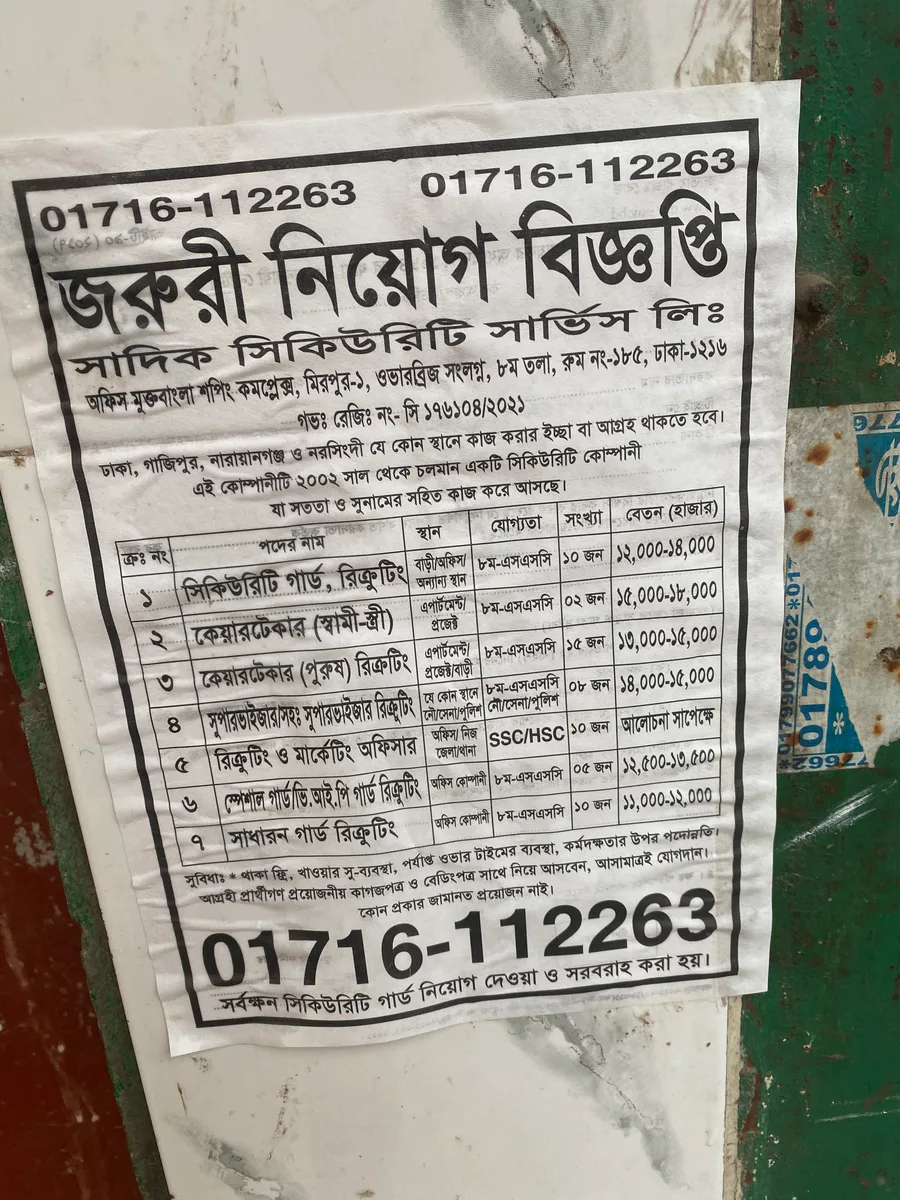 01716-112263 01716-112263
জরুরী নিয়োগ বিজ্ঞপ্তি
সাদিক সিকিউরিটি সার্ভিস লিঃ
অফিস মুক্তবাংলা শপিং কমপ্লেক্স, মিরপুর-১, ওভারব্রিজ সংলগ্ন, ৮ম তলা, রুম নং-১৮৫, ঢাকা-১২১৬
গভঃ রেজিঃ নং- সি ১৭৬১০৪/২০২১
ঢাকা, গাজিপুর, নারায়ানগঞ্জ ও নরসিংদী যে কোন স্থানে কাজ করার ইচ্ছা বা আগ্রহ থাকতে হবে।
এই কোম্পানীটি ২০০২ সাল থেকে চলমান একটি সিকিউরিটি কোম্পানী
যা সততা ও সুনামের সহিত কাজ করে আসছে।
ক্রঃ নং পদের নাম স্থান যোগ্যতা সংখ্যা বেতন (হাজার)
১ সিকিউরিটি গার্ড, রিক্রুটিং বাড়ী/অফিস/ অন্যান্য স্থান ৮ম-এসএসসি ১০ জন ১২,০০০-১৪,০০০
২ কেয়ারটেকার (স্বামী-স্ত্রী) এপার্টমেন্ট/ প্রজেক্ট ৮ম-এসএসসি ০২ জন ১৫,০০০-১৮,০০০
৩ কেয়ারটেকার (পুরুষ) রিক্রুটিং এপার্টমেন্ট/ প্রজেক্ট/বাড়ী ৮ম-এসএসসি ১৫ জন ১৩,০০০-১৫,০০০
৪ সুপারভাইজার/সহঃ সুপারভাইজার রিক্রুটিং যে কোন স্থানে নৌ/সেনা/পুলিশ ৮ম-এসএসসি নৌ/সেনা/পুলিশ ০৮ জন ১৪,০০০-১৫,০০০
৫ রিক্রুটিং ও মার্কেটিং অফিসার অফিস/ নিজ জেলা/থানা SSC/HSC ১০ জন আলোচনা সাপেক্ষে
৬ স্পেশাল গার্ড/ভি.আই.পি গার্ড রিক্রুটিং অফিস কোম্পানী ৮ম-এসএসসি ০৫ জন ১২,৫০০-১৩,৫০০
৭ সাধারন গার্ড রিক্রুটিং অফিস কোম্পানী ৮ম-এসএসসি ১০ জন ১১,০০০-১২,০০০
সুবিধাঃ * থাকা ফ্রি, খাওয়ার সু-ব্যবস্থা, পর্যাপ্ত ওভার টাইমের ব্যবস্থা, কর্মদক্ষতার উপর পদোন্নতি।
আগ্রহী প্রার্থীগণ প্রয়োজনীয় কাগজপত্র ও বেডিংপত্র সাথে নিয়ে আসবেন, আসামাত্রই যোগদান।
কোন প্রকার জামানত প্রয়োজন নাই।
01716-112263
সর্বক্ষন সিকিউরিটি গার্ড নিয়োগ দেওয়া ও সরবরাহ করা হয়।